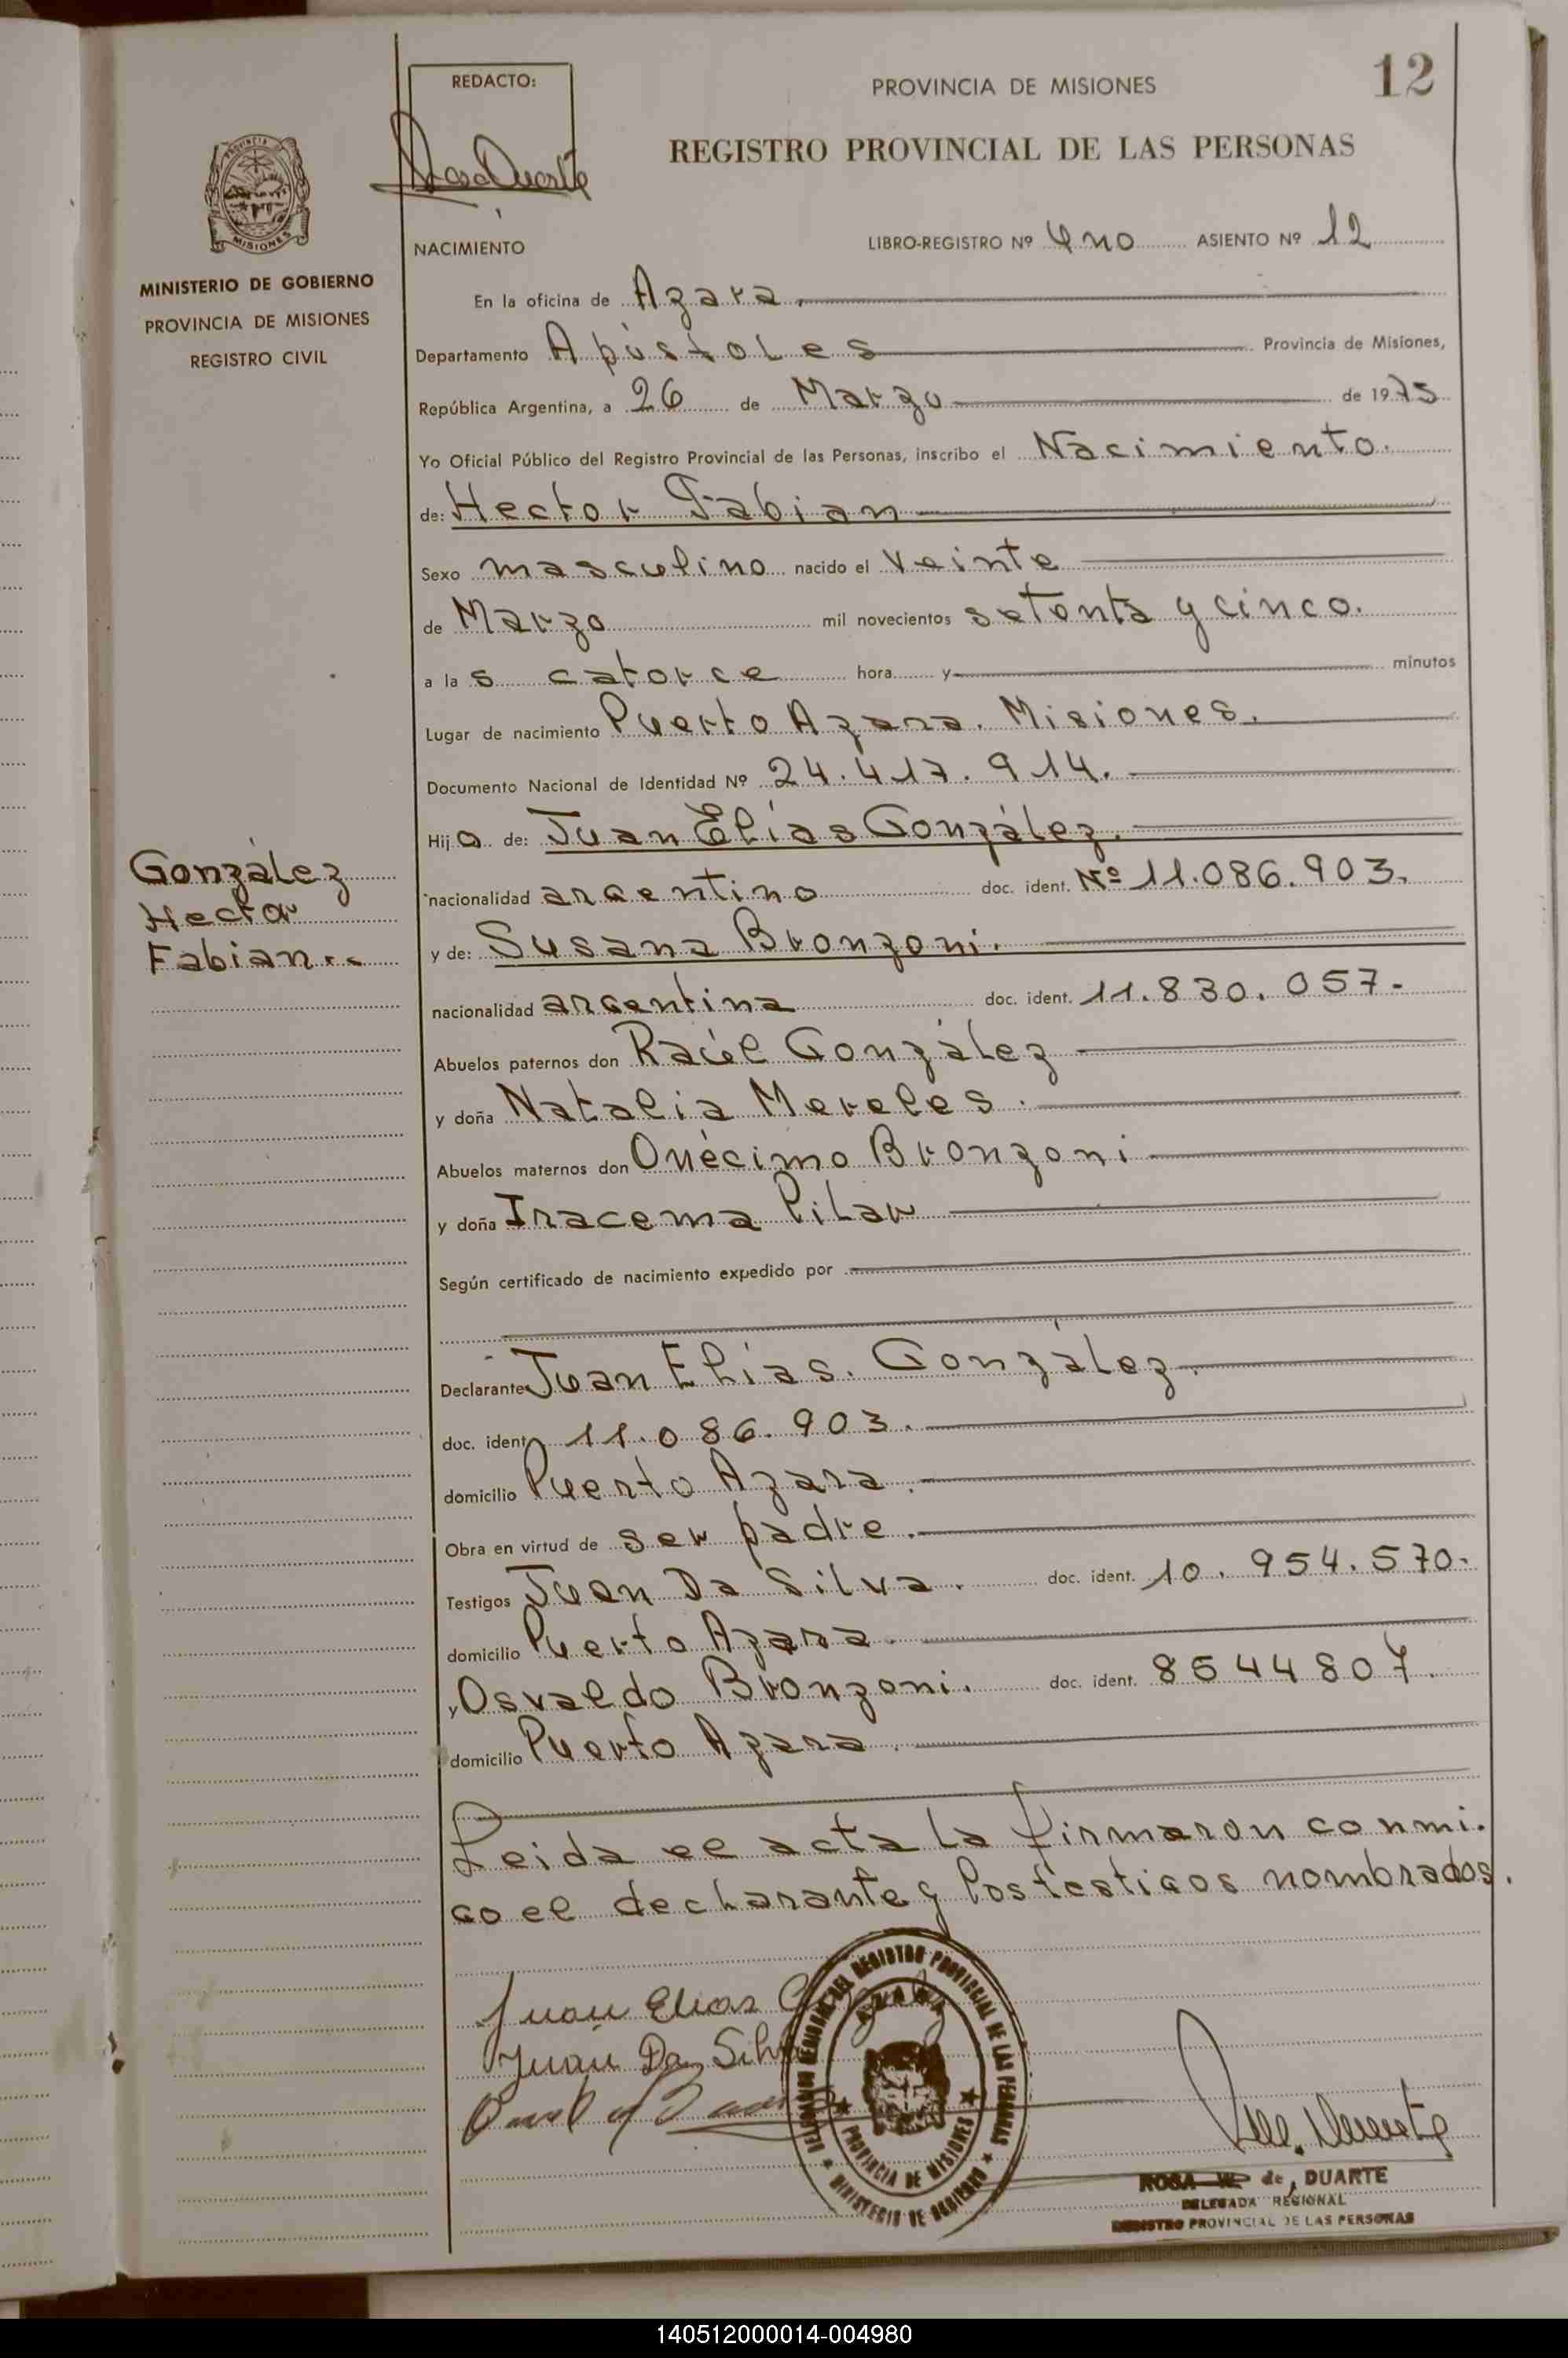 REDACTO:
PROVINCIA DE MISIONES
12
REGISTRO PROVINCIAL DE LAS PERSONAS
PROVINCIA
MISIONES
MINISTERIO DE GOBIERNO
PROVINCIA DE MISIONES
REGISTRO CIVIL
NACIMIENTO
LIBRO-REGISTRO Nº Uno ASIENTO Nº 12
En la oficina de Azara
Departamento Apóstoles Provincia de Misiones,
República Argentina, a 26 de Marzo de 1975
Yo Oficial Público del Registro Provincial de las Personas, inscribo el Nacimiento.
de: Hector Fabian
Sexo masculino nacido el veinte
de Marzo mil novecientos setenta y cinco.
a las catorce hora y minutos
Lugar de nacimiento Puerto Azara. Misiones.
Documento Nacional de Identidad Nº 24.417.914.
Hijo de: Juan Elías González.
nacionalidad argentino doc. ident. Nº 11.086.903.
y de: Susana Bronzoni.
nacionalidad argentina doc. ident. 11.830.057-
González
Hector
Fabian..
Abuelos paternos don Raúl González
y doña Natalia Mereles.
Abuelos maternos don Onécimo Bronzoni
y doña Iracema Pilar
Según certificado de nacimiento expedido por
Declarante Juan Elías. González.
doc. ident. 11.086.903.
domicilio Puerto Azara.
Obra en virtud de ser padre.
Testigos Juan Da Silva. doc. ident. 10.954.570.
domicilio Puerto Azara.
y Osvaldo Bronzoni. doc. ident. 8544807.
domicilio Puerto Azara.
Leida el acta la firmaron conmi-
go el declarante y los testigos nombrados.
Juan Elias
Juan Da Silva
DELEGACION REGIONAL DEL REGISTRO PROVINCIAL DE LAS PERSONAS
AZARA
PROVINCIA DE MISIONES
MINISTERIO DE GOBIERNO
ROSA de DUARTE
DELEGADA REGIONAL
REGISTRO PROVINCIAL DE LAS PERSONAS
140512000014-004980